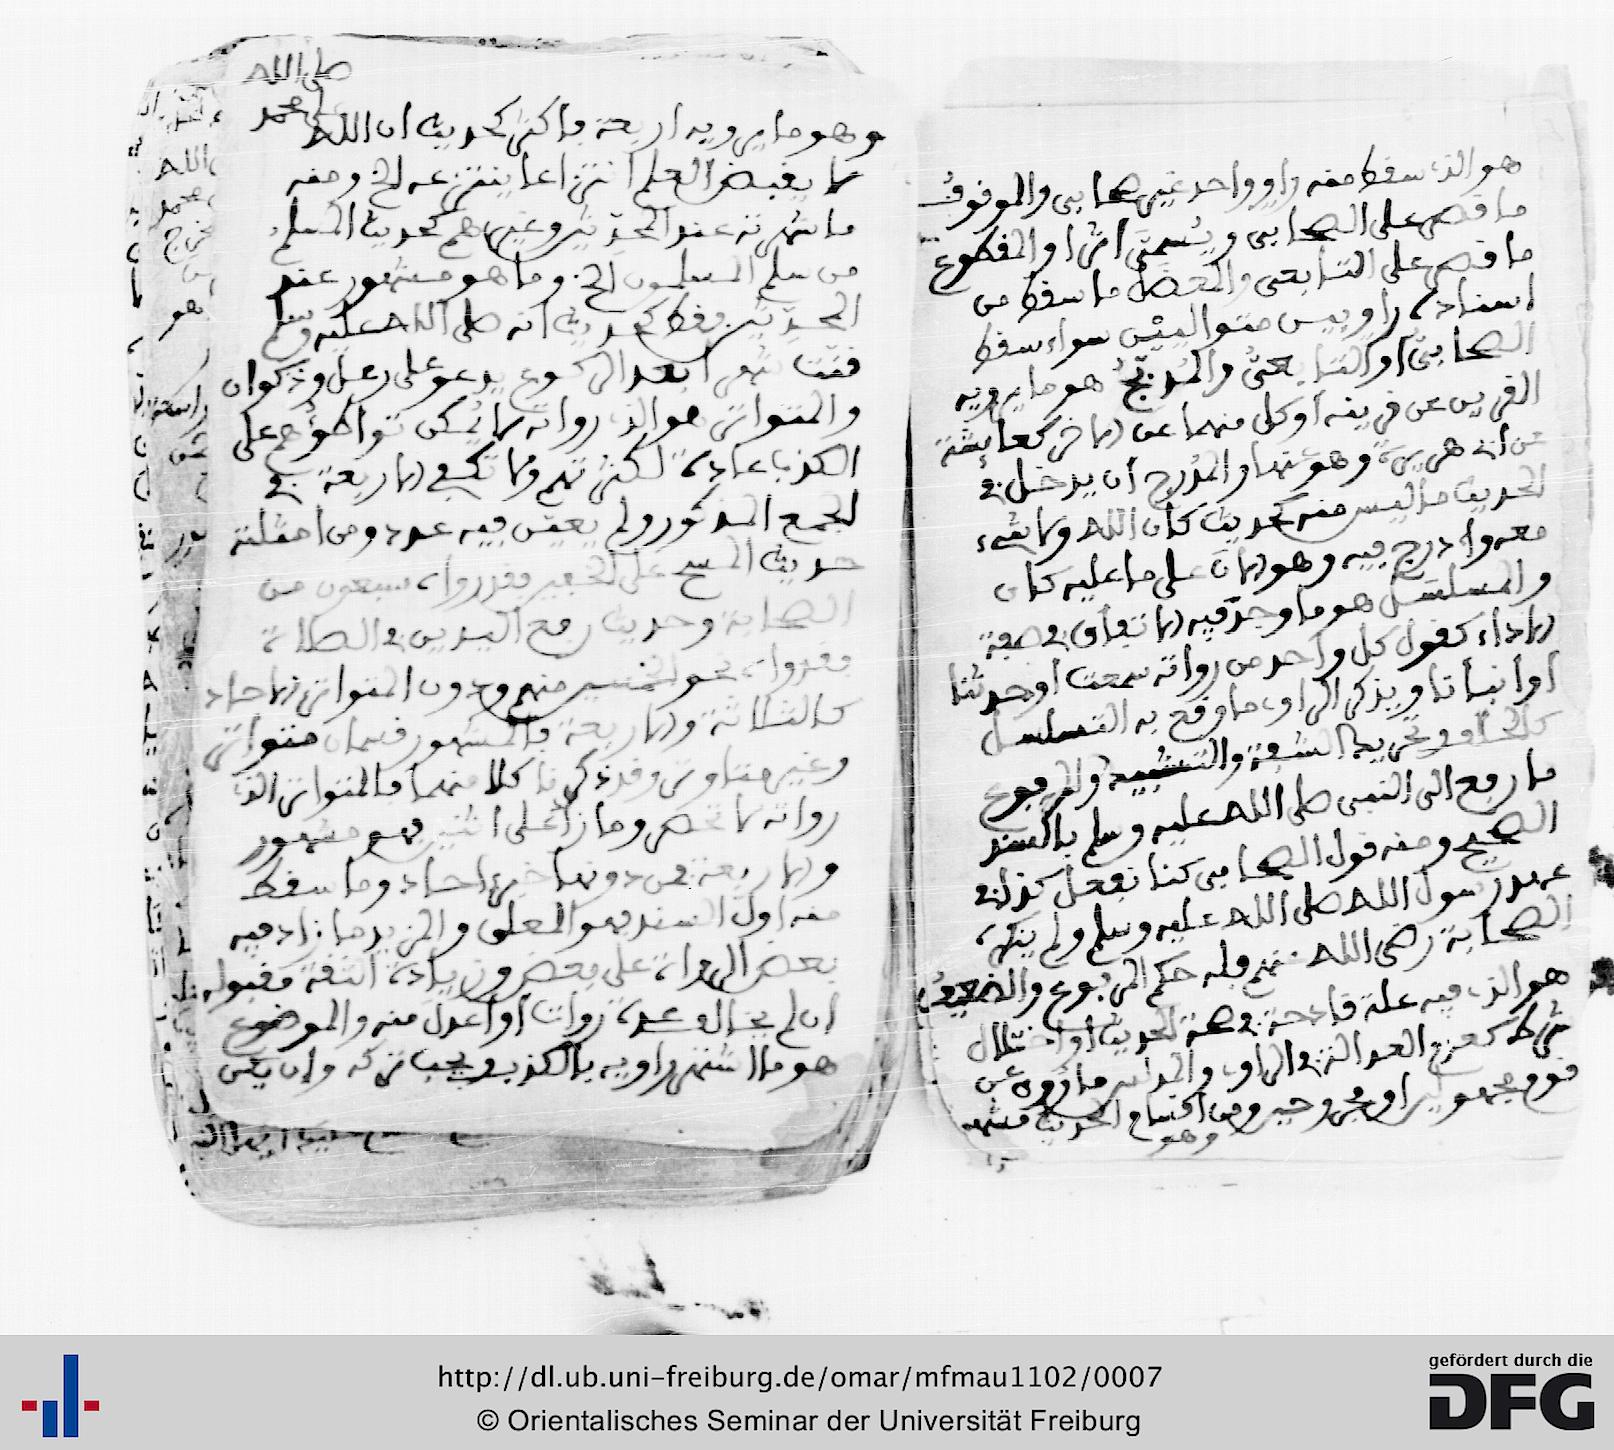 هو الذي سقط منه راو واحد غير صحابي والموقوف
ما قصر على الصحابي ويسمى اثرا والمقطوع
ما قصر على التابعي والمعضل ما سقط من
اسناده راويين متواليين سواء سقط
الصحابي او التابعي والمدبج هو ما يرويه
القرين عن قرينه او كل منهما عن الاخر كعايشة
عن ابي هريرة وهو عنها والمدرج ان يدخل في
الحديث ما ليس منه كحديث كان الله ولا شيء
معه وادرج فيه وهو الان على ما عليه كان
والمسلسل هو ما وجد فيه الاتفاق في صفة
الاداء كقول كل واحد من رواته سمعت او حدثنا
او انبأنا ويذكر الراوي ما وقع به التسلسل
والمرفوع
ما رفع الى النبي صلى الله عليه وسلم بالسند
الصحيح ومنه قول الصحابي كنا نفعل كذا في
عهد رسول الله صلى الله عليه وسلم ولم ينكره
الصحابة رضي الله عنهم فله حكم المرفوع والضعيف
هو الذي فيه علة قادحة في صحة الحديث او اختلال
شرط كعدم العدالة في الراوي والمدلس ما روي عن
قوم مجهولين او مجروحين ومن اقسام الحديث مشهور
وهو
صلى الله
على محمد
وهو ما يرويه اربعة فاكثر كحديث ان الله
لا يقبض العلم انتزاعا ينتزعه الخ ومنه
ما شهرته عند المحدثين وغيرهم كحديث المسلم
من سلم المسلمون الخ وما هو مشهور عند
المحدثين فقط كحديث انه صلى الله عليه وسلم
قنت شهرا بعد الركوع يدعو على رعل وذكوان
والمتواتر هو الذي رواته لا يمكن تواطؤهم على
الكذب عادة لكثرتهم ولا تكفي الاربعة في
الجمع المذكور ولم يعين فيه عدد ومن امثلته
حديث المسح على الخفين فقد رواه سبعون من
الصحابة وحديث رفع اليدين في الصلاة
فقد رواه نحو الخمسين منهم ودون المتواتر الاحاد
كالثلاثة والاربعة فالمشهور قسمان متواتر
وغير متواتر وقد ذكرنا كلا منهما فالمتواتر الذي
رواته لا تحصر وما زاد على اثنين فهو مشهور
والاربعة فمن دونها خبر احاد وما سقط
منه اول السند فهو المعلق والمزيد ما زاد فيه
بعض الرواة على بعض وزيادة الثقة مقبولة
ان لم يخالف عدة رواة او اعدل منه والموضوع
هو ما اشتهر راويه بالكذب ويجب تركه وان يكن